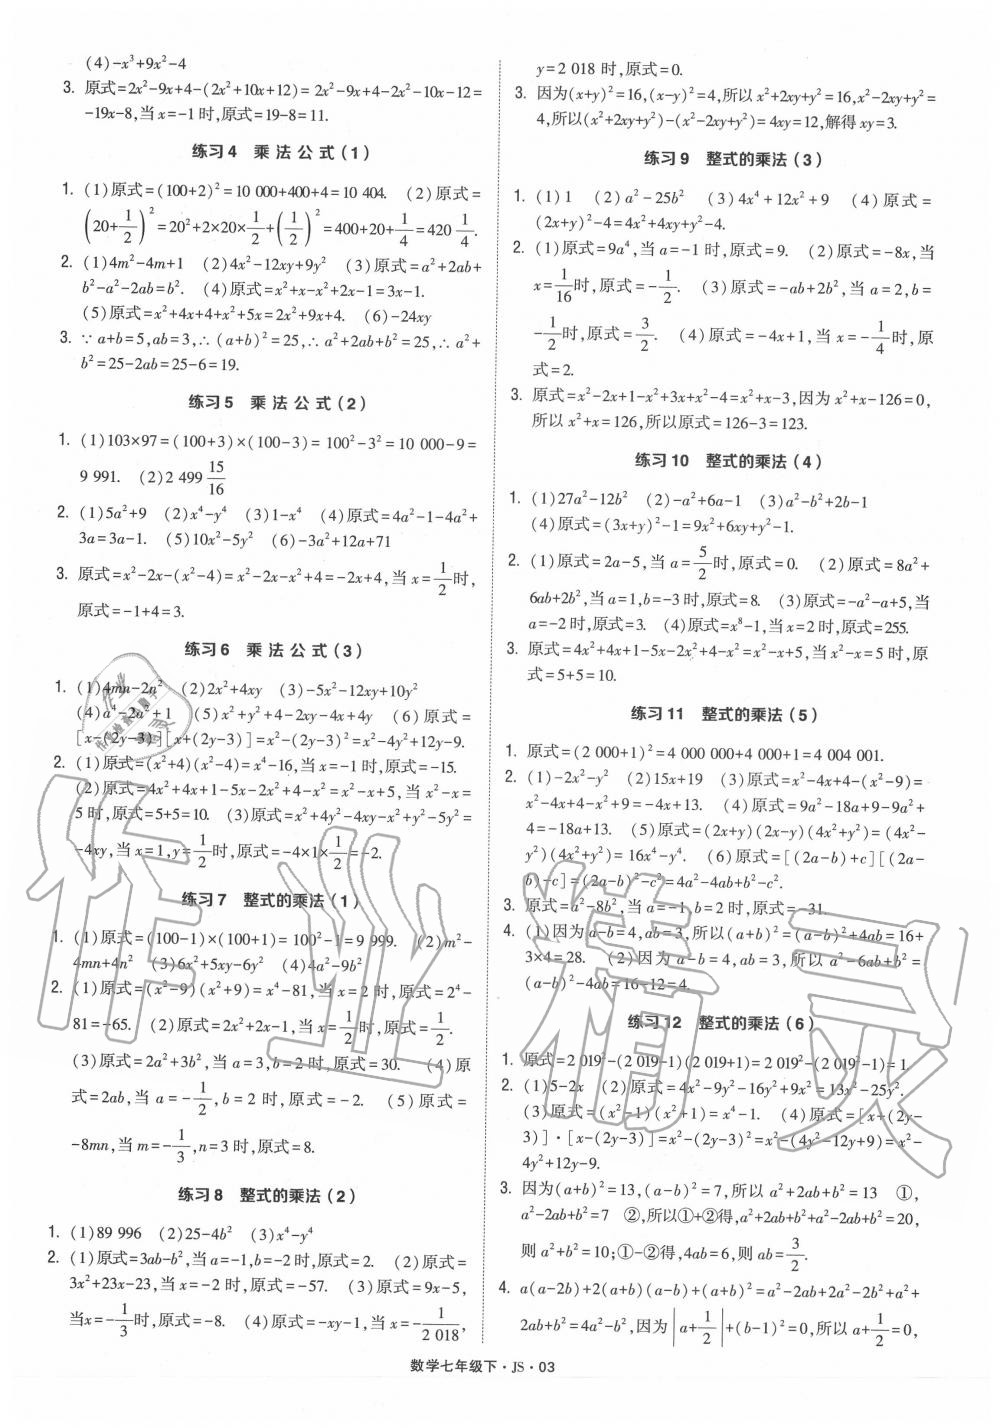 (4)-x³+9x²-4
3. 原式=2x²-9x+4-(2x²+10x+12)=2x²-9x+4-2x²-10x-12=
-19x-8,当x=-1时,原式=19-8=11.
练习4 乘法公式(1)
1. (1)原式=(100+2)²=10 000+400+4=10 404. (2)原式=
(20+1/2)²=20²+2×20×1/2+(1/2)²=400+20+1/4=420 1/4.
2. (1)4m²-4m+1 (2)4x²-12xy+9y² (3)原式=a²+2ab+
b²-a²-2ab=b². (4)原式=x²+x-x²+2x-1=3x-1.
(5)原式=x²+4x+4+x²+5x=2x²+9x+4. (6)-24xy
3. ∵a+b=5,ab=3,∴(a+b)²=25,∴a²+2ab+b²=25,∴a²+
b²=25-2ab=25-6=19.
练习5 乘法公式(2)
1. (1)103×97=(100+3)×(100-3)=100²-3²=10 000-9=
9 991. (2)2 499 15/16
2. (1)5a²+9 (2)x⁴-y⁴ (3)1-x⁴ (4)原式=4a²-1-4a²+
3a=3a-1. (5)10x²-5y² (6)-3a²+12a+71
3. 原式=x²-2x-(x²-4)=x²-2x-x²+4=-2x+4,当x=1/2时,
原式=-1+4=3.
练习6 乘法公式(3)
1. (1)4mn-2a² (2)2x²+4xy (3)-5x²-12xy+10y²
(4)a⁴-2a²+1 (5)x²+y²+4-2xy-4x+4y (6)原式=
[x-(2y-3)][x+(2y-3)]=x²-(2y-3)²=x²-4y²+12y-9.
2. (1)原式=(x²+4)(x²-4)=x⁴-16,当x=-1时,原式=-15.
(2)原式=4x²+4x+1-5x-2x²+4-x²=x²-x+5,当x²-x=
5时,原式=5+5=10. (3)原式=x²+4y²-4xy-x²+y²-5y²=
-4xy,当x=1,y=1/2时,原式=-4×1×1/2=-2.
练习7 整式的乘法(1)
1. (1)原式=(100-1)×(100+1)=100²-1=9 999. (2)m²-
4mn+4n² (3)6x²+5xy-6y² (4)4a²-9b²
2. (1)原式=(x²-9)(x²+9)=x⁴-81,当x=2时,原式=2⁴-
81=-65. (2)原式=2x²+2x-1,当x=1/2时,原式=1/2.
(3)原式=2a²+3b²,当a=3,b=2时,原式=30. (4)原
式=2ab,当a=-1/2,b=2时,原式=-2. (5)原式=
-8mn,当m=-1/3,n=3时,原式=8.
练习8 整式的乘法(2)
1. (1)89 996 (2)25-4b² (3)x⁴-y⁴
2. (1)原式=3ab-b²,当a=-1,b=-2时,原式=2. (2)原式=
3x²+23x-23,当x=-2时,原式=-57. (3)原式=9x-5,
当x=-1/3时,原式=-8. (4)原式=-xy-1,当x=-1/2 018,
y=2 018时,原式=0.
3. 因为(x+y)²=16,(x-y)²=4,所以x²+2xy+y²=16,x²-2xy+y²=
4,所以(x²+2xy+y²)-(x²-2xy+y²)=4xy=12,解得xy=3.
练习9 整式的乘法(3)
1. (1)1 (2)a²-25b² (3)4x⁴+12x²+9 (4)原式=
(2x+y)²-4=4x²+4xy+y²-4.
2. (1)原式=9a⁴,当a=-1时,原式=9. (2)原式=-8x,当
x=1/16时,原式=-1/2. (3)原式=-ab+2b²,当a=2,b=
-1/2时,原式=3/2. (4)原式=-4x+1,当x=-1/4时,原
式=2.
3. 原式=x²-2x+1-x²+3x+x²-4=x²+x-3,因为x²+x-126=0,
所以x²+x=126,所以原式=126-3=123.
练习10 整式的乘法(4)
1. (1)27a²-12b² (2)-a²+6a-1 (3)a²-b²+2b-1
(4)原式=(3x+y)²-1=9x²+6xy+y²-1.
2. (1)原式=2a-5,当a=5/2时,原式=0. (2)原式=8a²+
6ab+2b²,当a=1,b=-3时,原式=8. (3)原式=-a²-a+5,当
a=-2时,原式=3. (4)原式=x⁸-1,当x=2时,原式=255.
3. 原式=4x²+4x+1-5x-2x²+4-x²=x²-x+5,当x²-x=5时,原
式=5+5=10.
练习11 整式的乘法(5)
1. 原式=(2 000+1)²=4 000 000+4 000+1=4 004 001.
2. (1)-2x²-y² (2)15x+19 (3)原式=x²-4x+4-(x²-9)=
x²-4x+4-x²+9=-4x+13. (4)原式=9a²-18a+9-9a²+
4=-18a+13. (5)原式=(2x+y)(2x-y)(4x²+y²)=(4x²-
y²)(4x²+y²)=16x⁴-y⁴. (6)原式=[(2a-b)+c][(2a-
b)-c]=(2a-b)²-c²=4a²-4ab+b²-c².
3. 原式=a²-8b²,当a=-1,b=2时,原式=-31.
4. (1)因为a-b=4,ab=3,所以(a+b)²=(a-b)²+4ab=16+
3×4=28. (2)因为a-b=4,ab=3,所以a²-6ab+b²=
(a-b)²-4ab=16-12=4.
练习12 整式的乘法(6)
1. 原式=2 019²-(2 019-1)(2 019+1)=2 019²-(2 019²-1)=1.
2. (1)5-2x (2)原式=4x²-9y²-16y²+9x²=13x²-25y².
(3)原式=(x²-1)(x²+1)=x⁴-1. (4)原式=[x+(2y-
3)]·[x-(2y-3)]=x²-(2y-3)²=x²-(4y²-12y+9)=x²-
4y²+12y-9.
3. 因为(a+b)²=13,(a-b)²=7,所以a²+2ab+b²=13 ①,
a²-2ab+b²=7 ②,所以①+②得,a²+2ab+b²+a²-2ab+b²=20,
则a²+b²=10;①-②得,4ab=6,则ab=3/2.
4. a(a-2b)+2(a+b)(a-b)+(a+b)²=a²-2ab+2a²-2b²+a²+
2ab+b²=4a²-b²,因为|a+1/2|+(b-1)²=0,所以a+1/2=0,
数学七年级下·JS·03
作业精灵